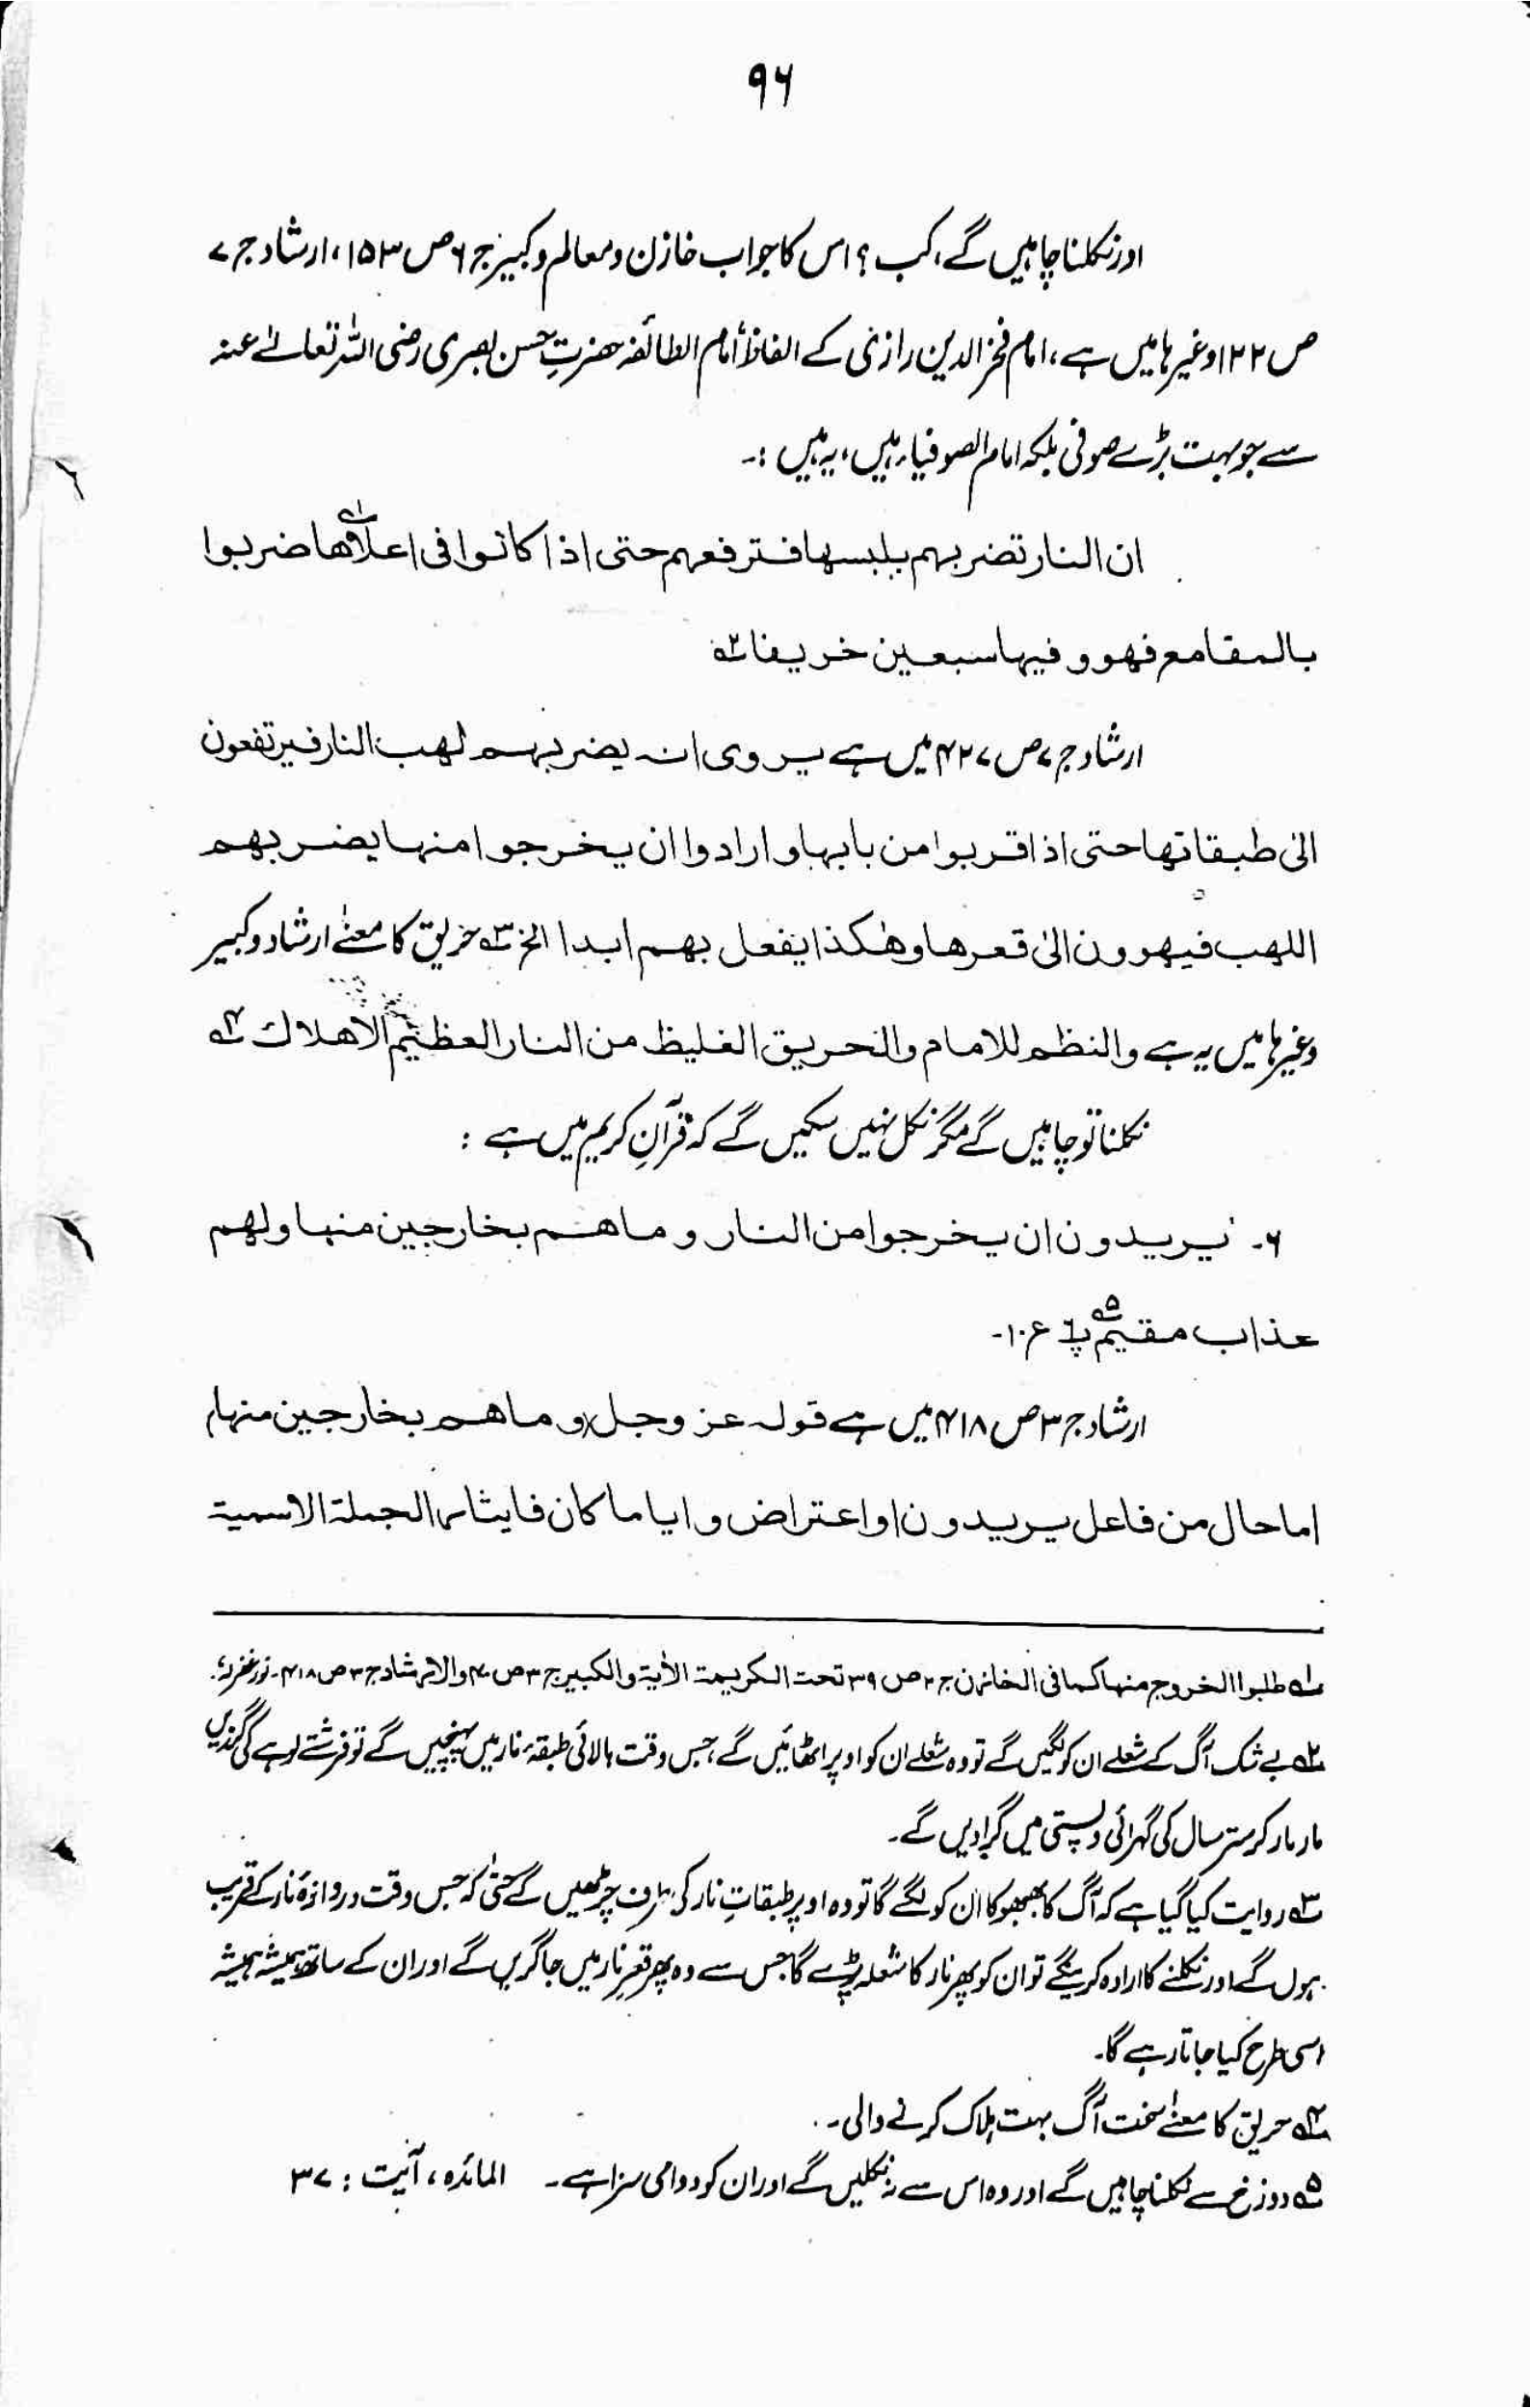 ۹۶
اور نکلنا چاہیں گے، کب؟ اس کا جواب خازن و معالم و کبیر ج ۶ ص ۱۵۳، ارشاد ج ۷
ص ۱۲۲ وغیرہا میں ہے، امام فخر الدین رازی کے الفاظ امام الطائفہ حضرتِ حسن بصری رضی اللہ تعالےٰ عنہ
سے جو بہت بڑے صوفی بلکہ امام الصوفیاء ہیں، یہ ہیں :۔
ان النار تضربهم بلبسها فترفعهم حتی اذا کانوا فی اعلاها ؁۱ ضربوا
بالمقامع فهووا فیها سبعین خریفا ؁۲
ارشاد ج ۷ ص ۴۲۷ میں ہے یروی انه یضربهم لهب النار فیرتفعون
الیٰ طبقاتها حتی اذا قربوا من بابها و ارادوا ان یخرجوا منها یضربهم
اللهب فیهوون الیٰ قعرها وهٰکذا یفعل بهم ابدا الخ ؁۳ حریق کا معنےٰ ارشاد و کبیر
وغیرہا میں یہ ہے والنظم للامام والحریق الغلیظ من النار العظیم الاهلاك ؁۴
نکلنا تو چاہیں گے مگر نکل نہیں سکیں گے کہ قرآنِ کریم میں ہے :
۶۔ یریدون ان یخرجوا من النار و ما هم بخارجین منها ولهم
عذاب مقیم ؁۵ پ ۶ ع ۱۰۔
ارشاد ج ۳ ص ۴۱۸ میں ہے قوله عز وجل (و ما هم بخارجین منها)
اما حال من فاعل یریدون او اعتراض و ایا ما کان فایثار الجملة الاسمیة
؁۱ طلبوا الخروج منها کما فی الخازن ج ۲ ص ۳۹ تحت الکریمة الأیة والکبیر ج ۳ ص ۴۰ والارشاد ج ۳ ص ۴۱۸۔ نور غفرلہٗ۔
؁۲ بے شک آگ کے شعلے ان کو لگیں گے تو وہ شعلے ان کو اوپر اٹھائیں گے، جس وقت بالائی طبقۂ نار میں پہنچیں گے تو فرشتے لوہے کی گرزیں
مار مار کر ستر سال کی گہرائی و پستی میں گرا دیں گے۔
؁۳ روایت کیا گیا ہے کہ آگ کا بھبھوکا ان کو لگے گا تو وہ اوپر طبقاتِ نار کی طرف چڑھیں گے حتیٰ کہ جس وقت دروازۂ نار کے قریب
ہوں گے اور نکلنے کا ارادہ کریںگے تو ان کو پھر نار کا شعلہ پڑے گا جس سے وہ پھر قعرِ نار میں جا گریں گے اور ان کے ساتھ ہمیشہ ہمیشہ
اسی طرح کیا جاتا رہے گا۔
؁۴ حریق کا معنےٰ سخت آگ بہت ہلاک کرنے والی۔
؁۵ دوزخ سے نکلنا چاہیں گے اور وہ اس سے نہ نکلیں گے اور ان کو دوامی سزا ہے۔ المائدہ، آیت : ۳۷